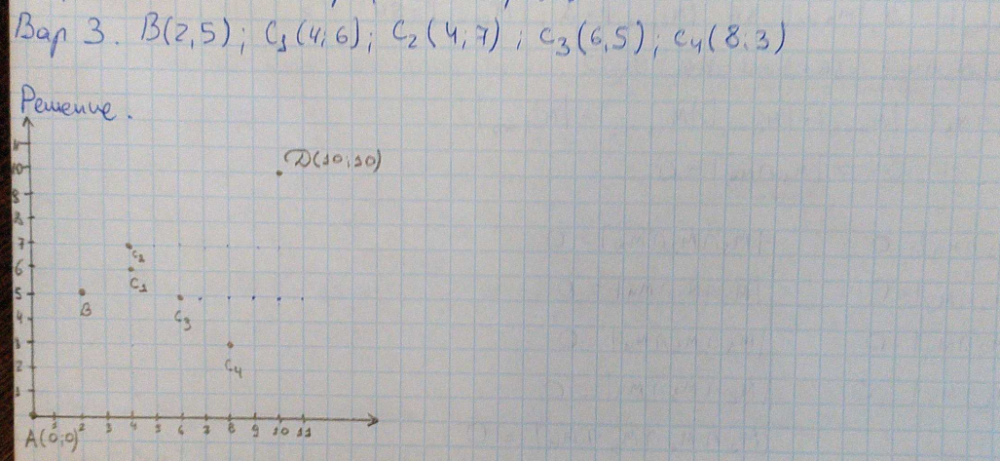 Вар 3. B(2,5); C₁(4;6); C₂(4;7); C₃(6,5); C₄(8;3)
Решение.
D(10;10)
11
10
9
8
7
6
5
4
3
2
1
C₂
C₁
B
C₃
C₄
1 2 3 4 5 6 7 8 9 10 11
A(0;0)